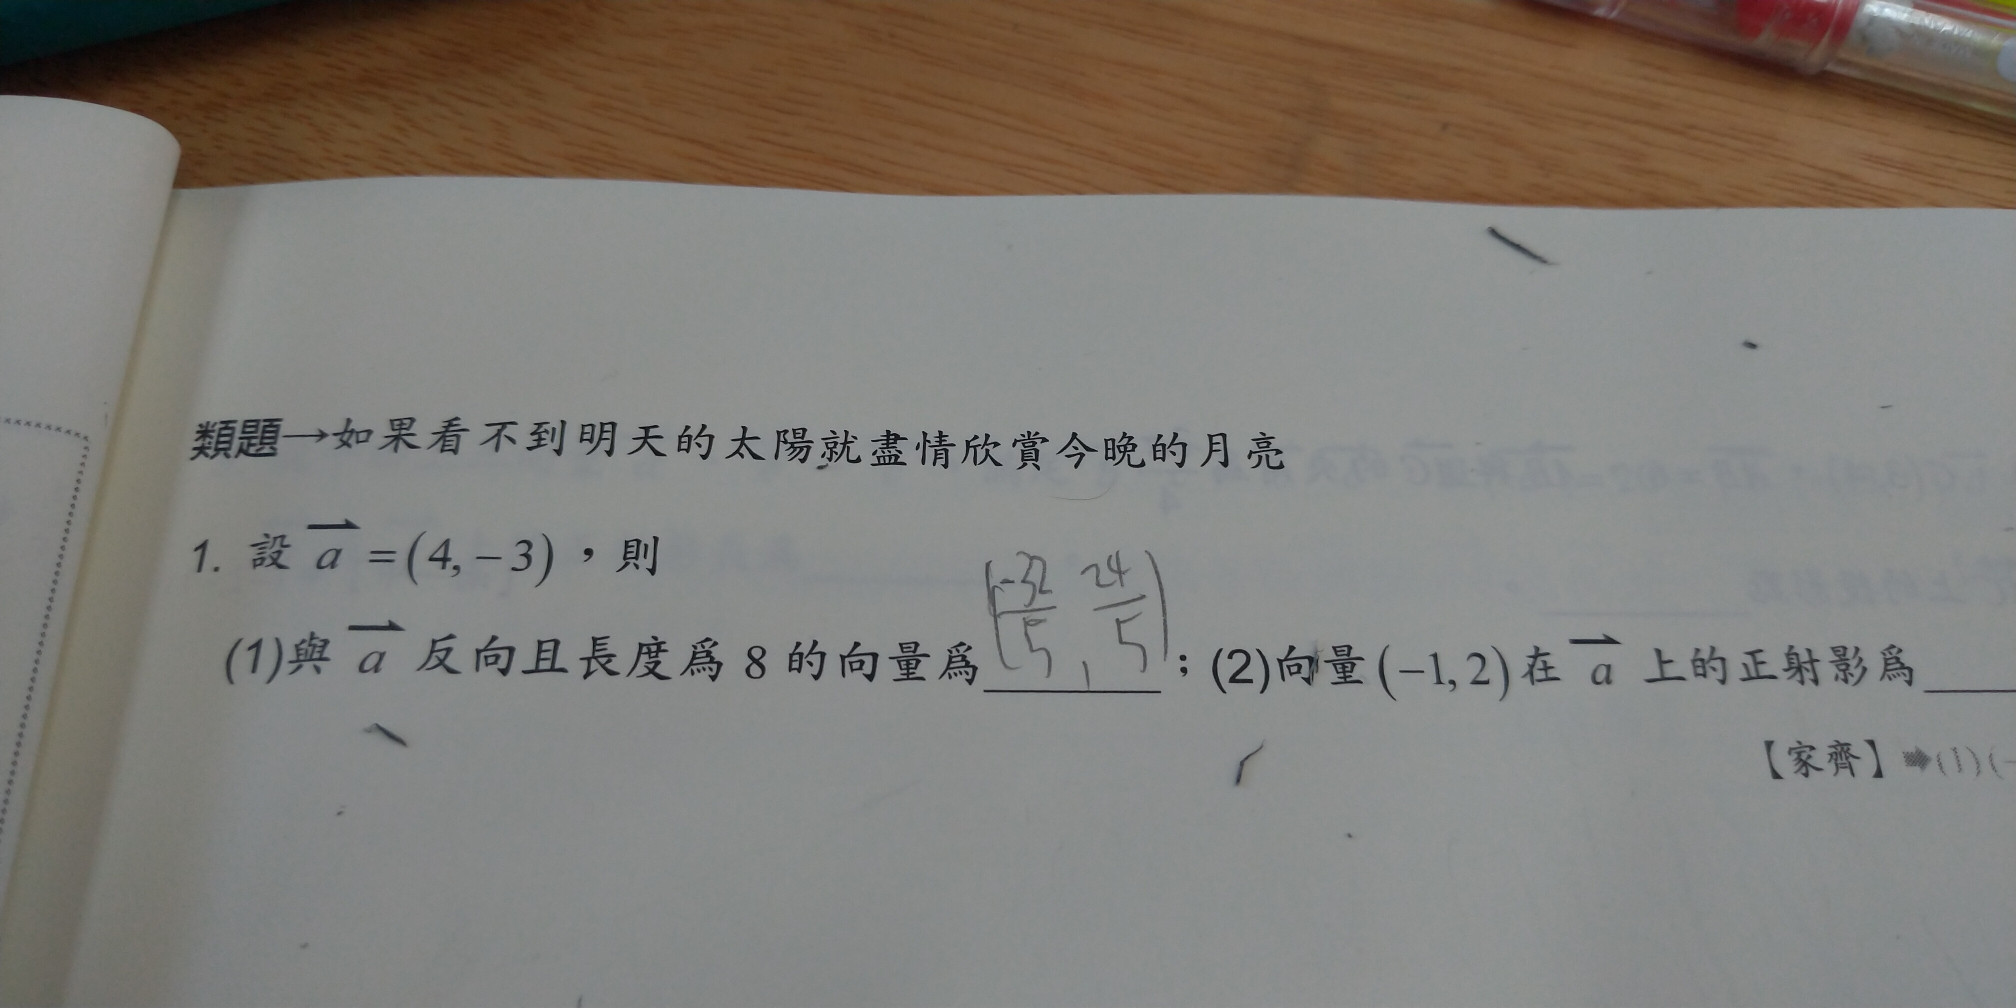 類題→如果看不到明天的太陽就盡情欣賞今晚的月亮
1. 設 a⃑ = (4, −3)，則
(1)與 a⃑ 反向且長度爲 8 的向量爲 (-32/5, 24/5)；(2)向量(−1, 2)在 a⃑ 上的正射影爲
【家齊】➡(1)(-